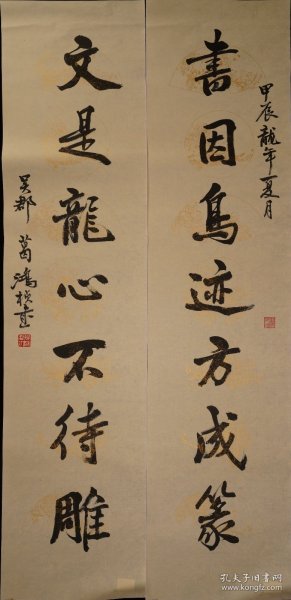 書因鳥迹方成篆
甲辰龍年夏月
文是龍心不待雕
吳郡 葛鴻楨書
孔夫子旧书网
www.kongfz.com